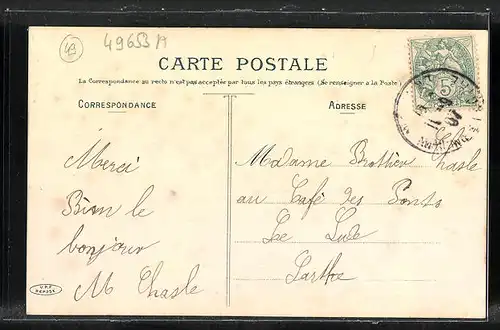 43
49653 A
CARTE POSTALE
La Correspondance au recto n'est pas acceptée par tous les pays étrangers (Se renseigner à la Poste)
CORRESPONDANCE
ADRESSE
5
Merci
Bien le
bonjour
M Chasle
Madame Brottier Chasle
au Café des Ponts
Le Lude
Sarthe